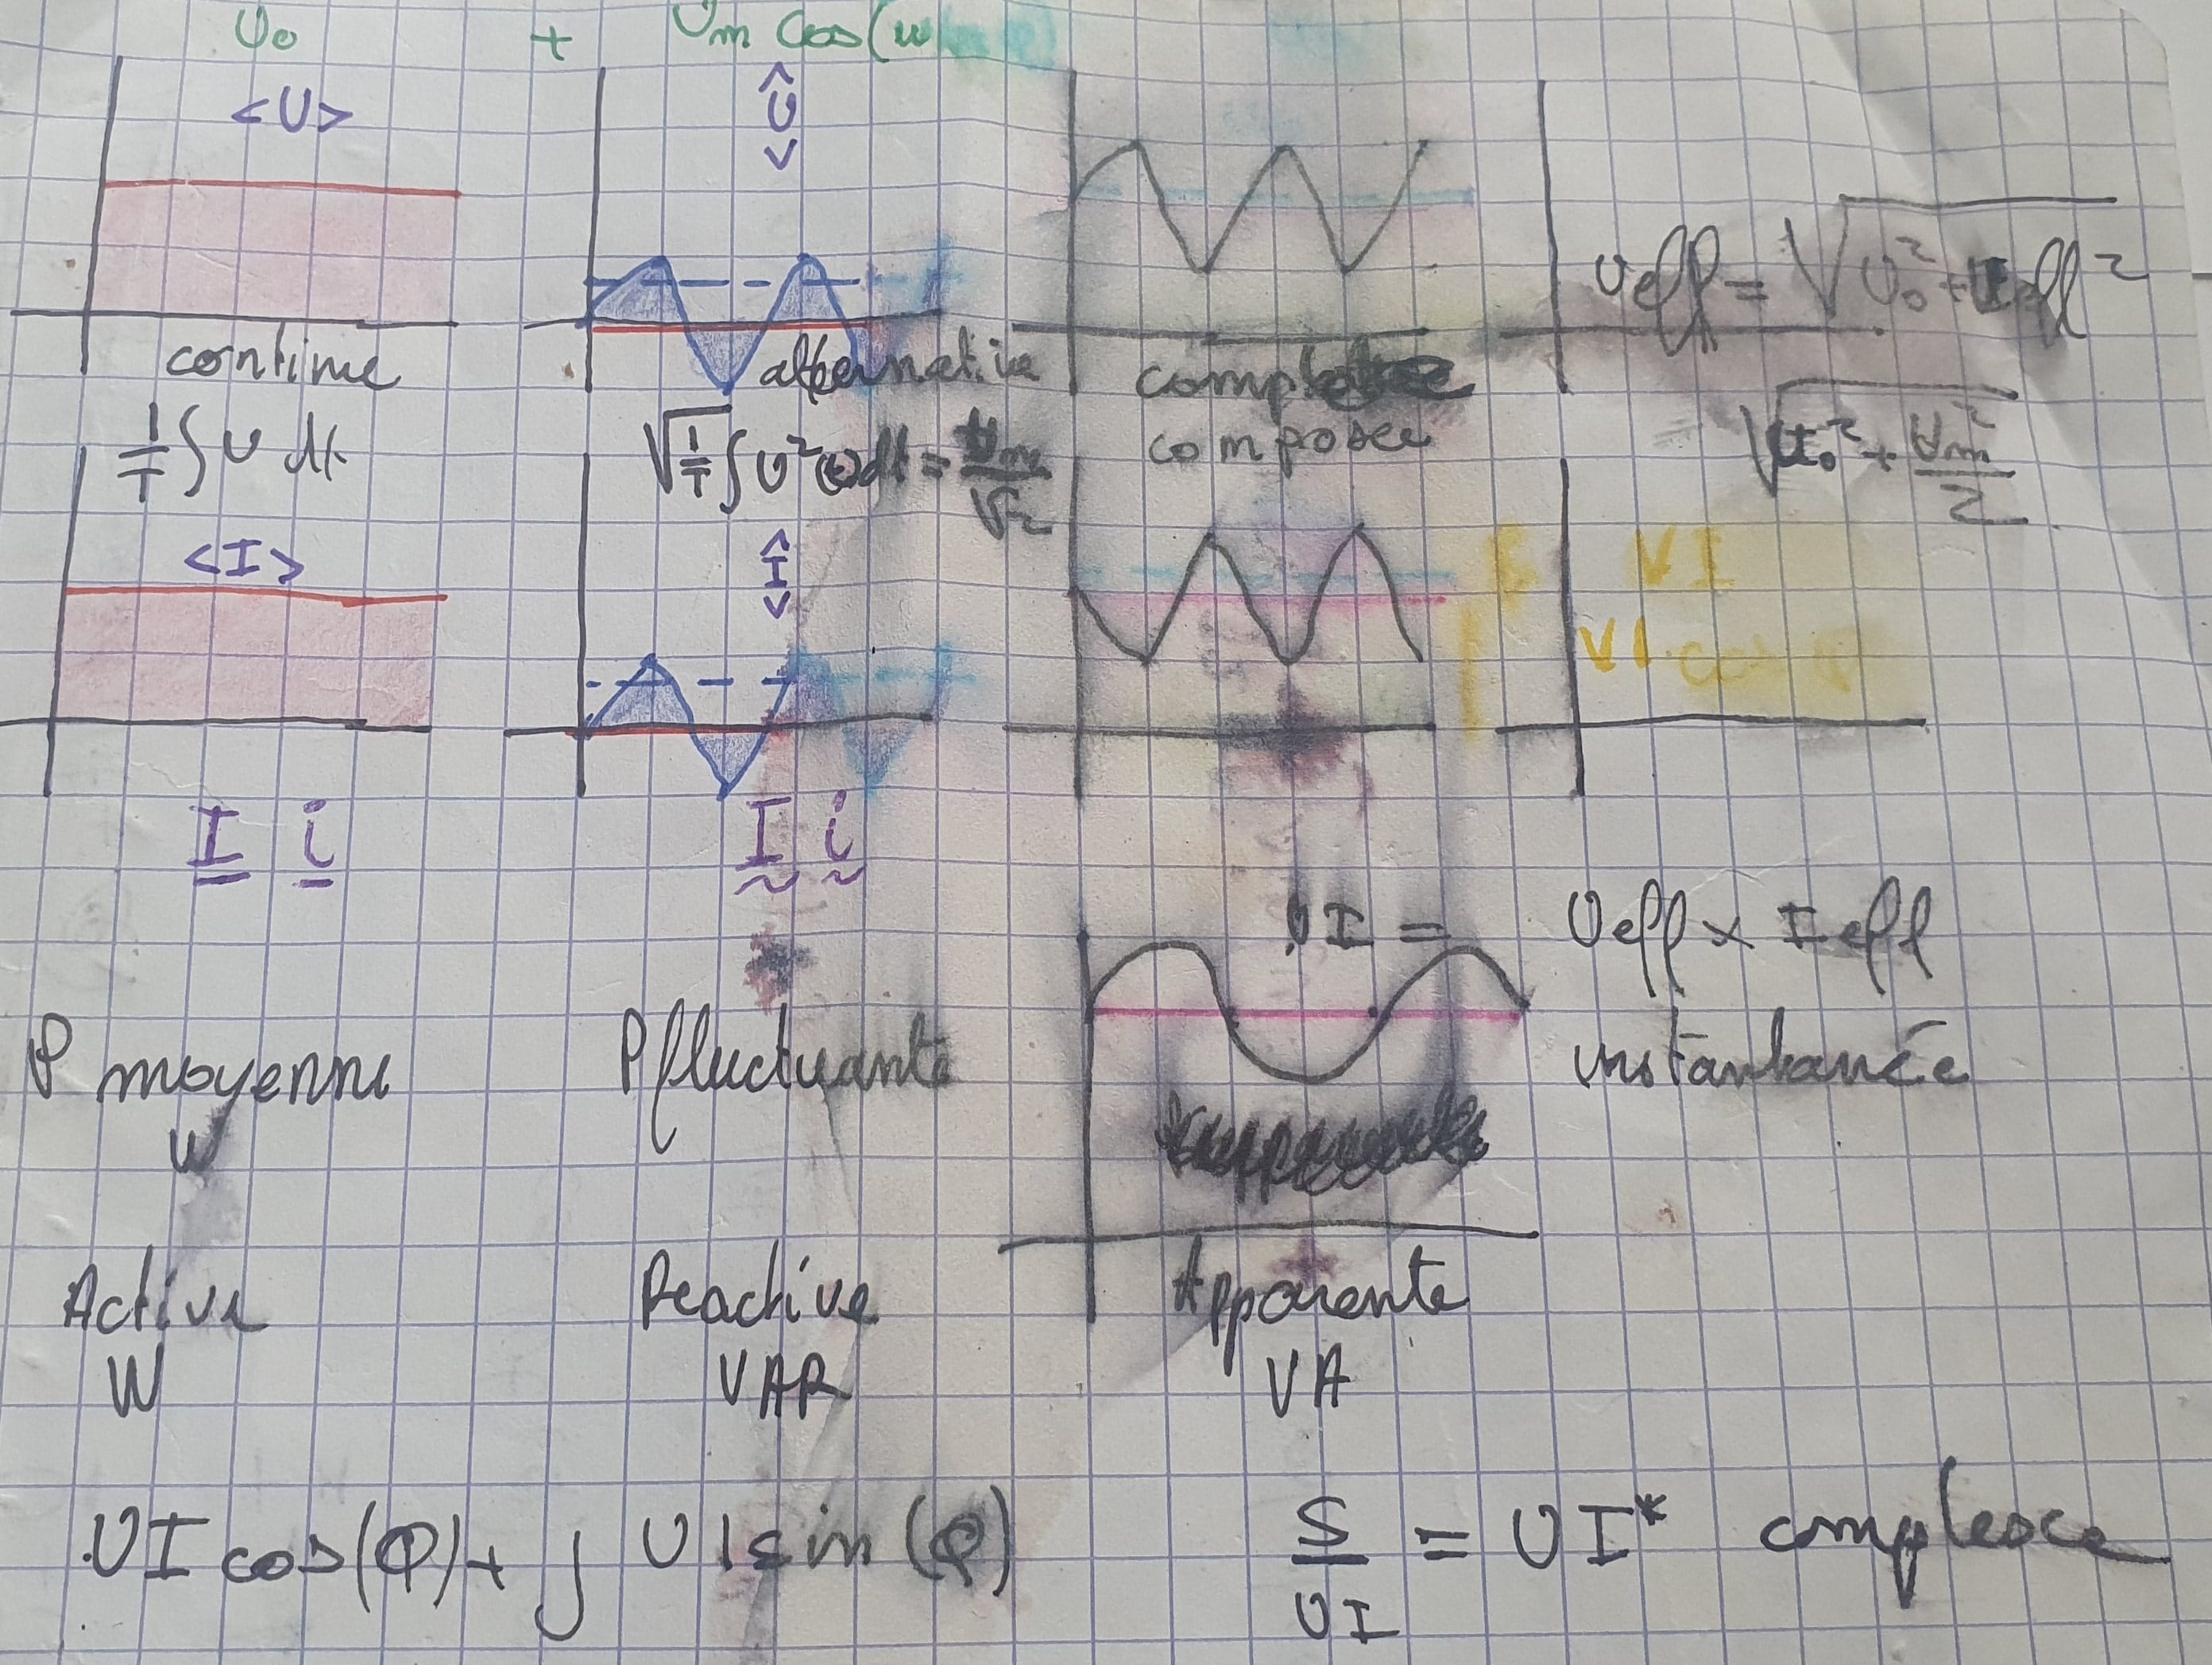 U₀ + Um cos(ω
<U> <Û>
Ueff = √U₀² + Ueff²
continue alternative
composée
1/T ∫ U dt √1/T ∫ U²(t) dt = Um/√2 √U₀² + Um²/2
<I> <Î>
VI
VI cos φ
I i I i
UI = Ueff × Ieff
P moyenne P fluctuante instantanée
W
Active Reactive Apparente
W VAR VA
UI cos(φ) + j UI sin(φ) S = UI* complexe
UI